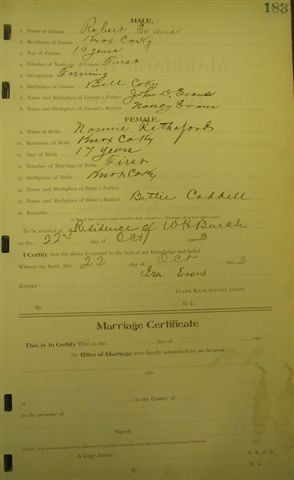 183
MALE.
1. Name of Groom Robert Evans
2. Residence of Groom Knox Co Ky
3. Age of Groom 19 years
4. Number of Marriage of Groom First
5. Occupation Farming
6. Birthplace of Groom Bell Co Ky
7. Name and Birthplace of Groom's Father John D Evans
8. Name and Birthplace of Groom's Mother Nancy Evans
FEMALE.
9. Name of Bride Nannie
10. Residence of Bride Knox Co Ky
11. Age of Bride 17 years
12. Number of Marriage of Bride First
13. Birthplace of Bride Knox Co Ky
14. Name and Birthplace of Bride's Father
15. Name and Birthplace of Bride's Mother Bettie Caddell
16. Remarks
To be married at Residence of W H
on the 22nd day of Oct 3
I Certify that the above is correct to the best of my knowledge and belief.
Witness my hand, this 22 day of Oct 3
Ira Evans
Attest:
Clerk Knox County Court
By D. C.
Marriage Certificate
This is to Certify That on the day of
the Rites of Marriage were legally solemnized by me between
and
at in the County of
in the presence of
Signed,
A Copy Attest: C. K. C. C.
By D. C.